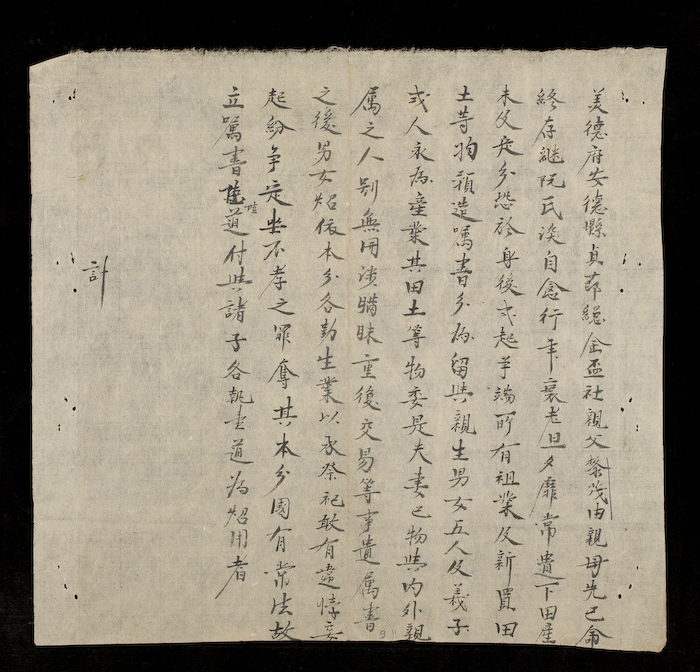 美德府安德縣貞莭縂金盃社親父黎茂由親毋先已命
終存継阮氏淡自念行年衰老旦夕靡常遺下田產
未父定分恐於身後或起爭端所有祖業及新買田
土等物預造囑書分為留與親生男女五人及義子
或人永為產業其田土等物委是夫妻己物與內外親
属之人別無用淡瞞昧重復交易等事遺属書
之後男女炤依本分各勤生業以承祭祀敢有違悖妄
起紛争定坐不孝之罪奪其本分國有常法故
立嘱書道付與諸子各執壹道為炤用者
計